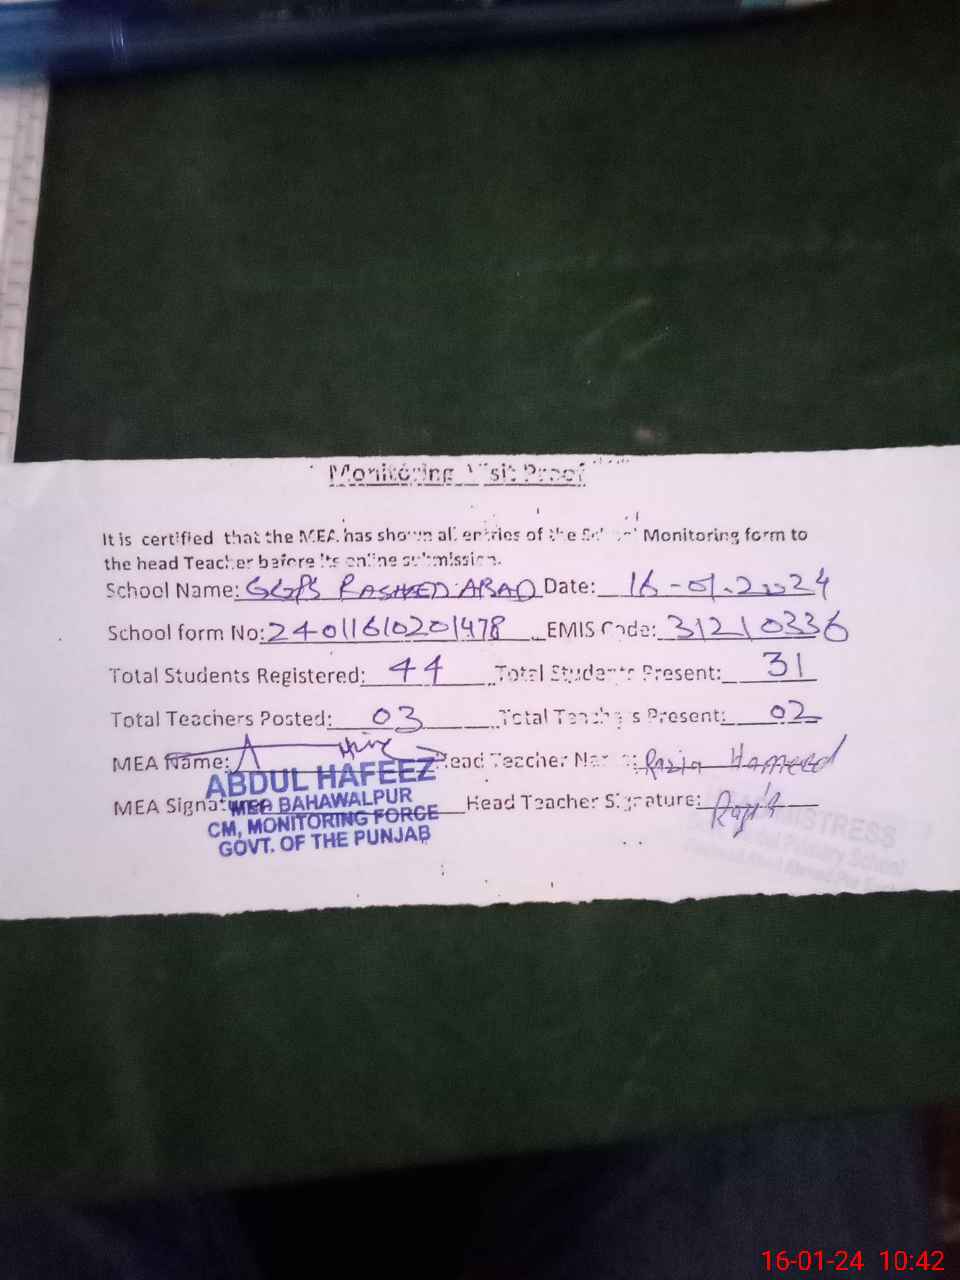 Monitoring Visit Proof
It is certified that the MEA has shown all entries of the School Monitoring form to
the head Teacher before its online submission.
School Name: GGPS RASHEED ABAD Date: 16-01-2024
School form No: 24011610201478 EMIS Code: 31210336
Total Students Registered: 44 Total Students Present: 31
Total Teachers Posted: 03 Total Teachers Present: 02
MEA Name: Head Teacher Name: Razia Hameed
MEA Signature Head Teacher Signature: Razia
ABDUL HAFEEZ
MEA BAHAWALPUR
CM, MONITORING FORCE
GOVT. OF THE PUNJAB
MISTRESS
Primary School
16-01-24 10:42